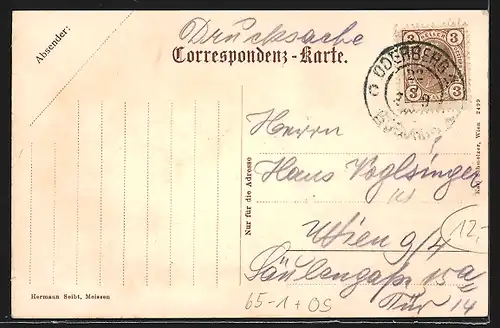 Drucksache
Absender:
Correspondenz-Karte.
3 HELLER 3
3 3
ODERBERG
Herrn
Hans Voglsinger
in
Wien 9/4
Säulengasse 15a
Tür 14
Nur für die Adresse
Karl Schmelzer, Wien 2499
12.-
65-1+OS
Hermann Seibt, Meissen